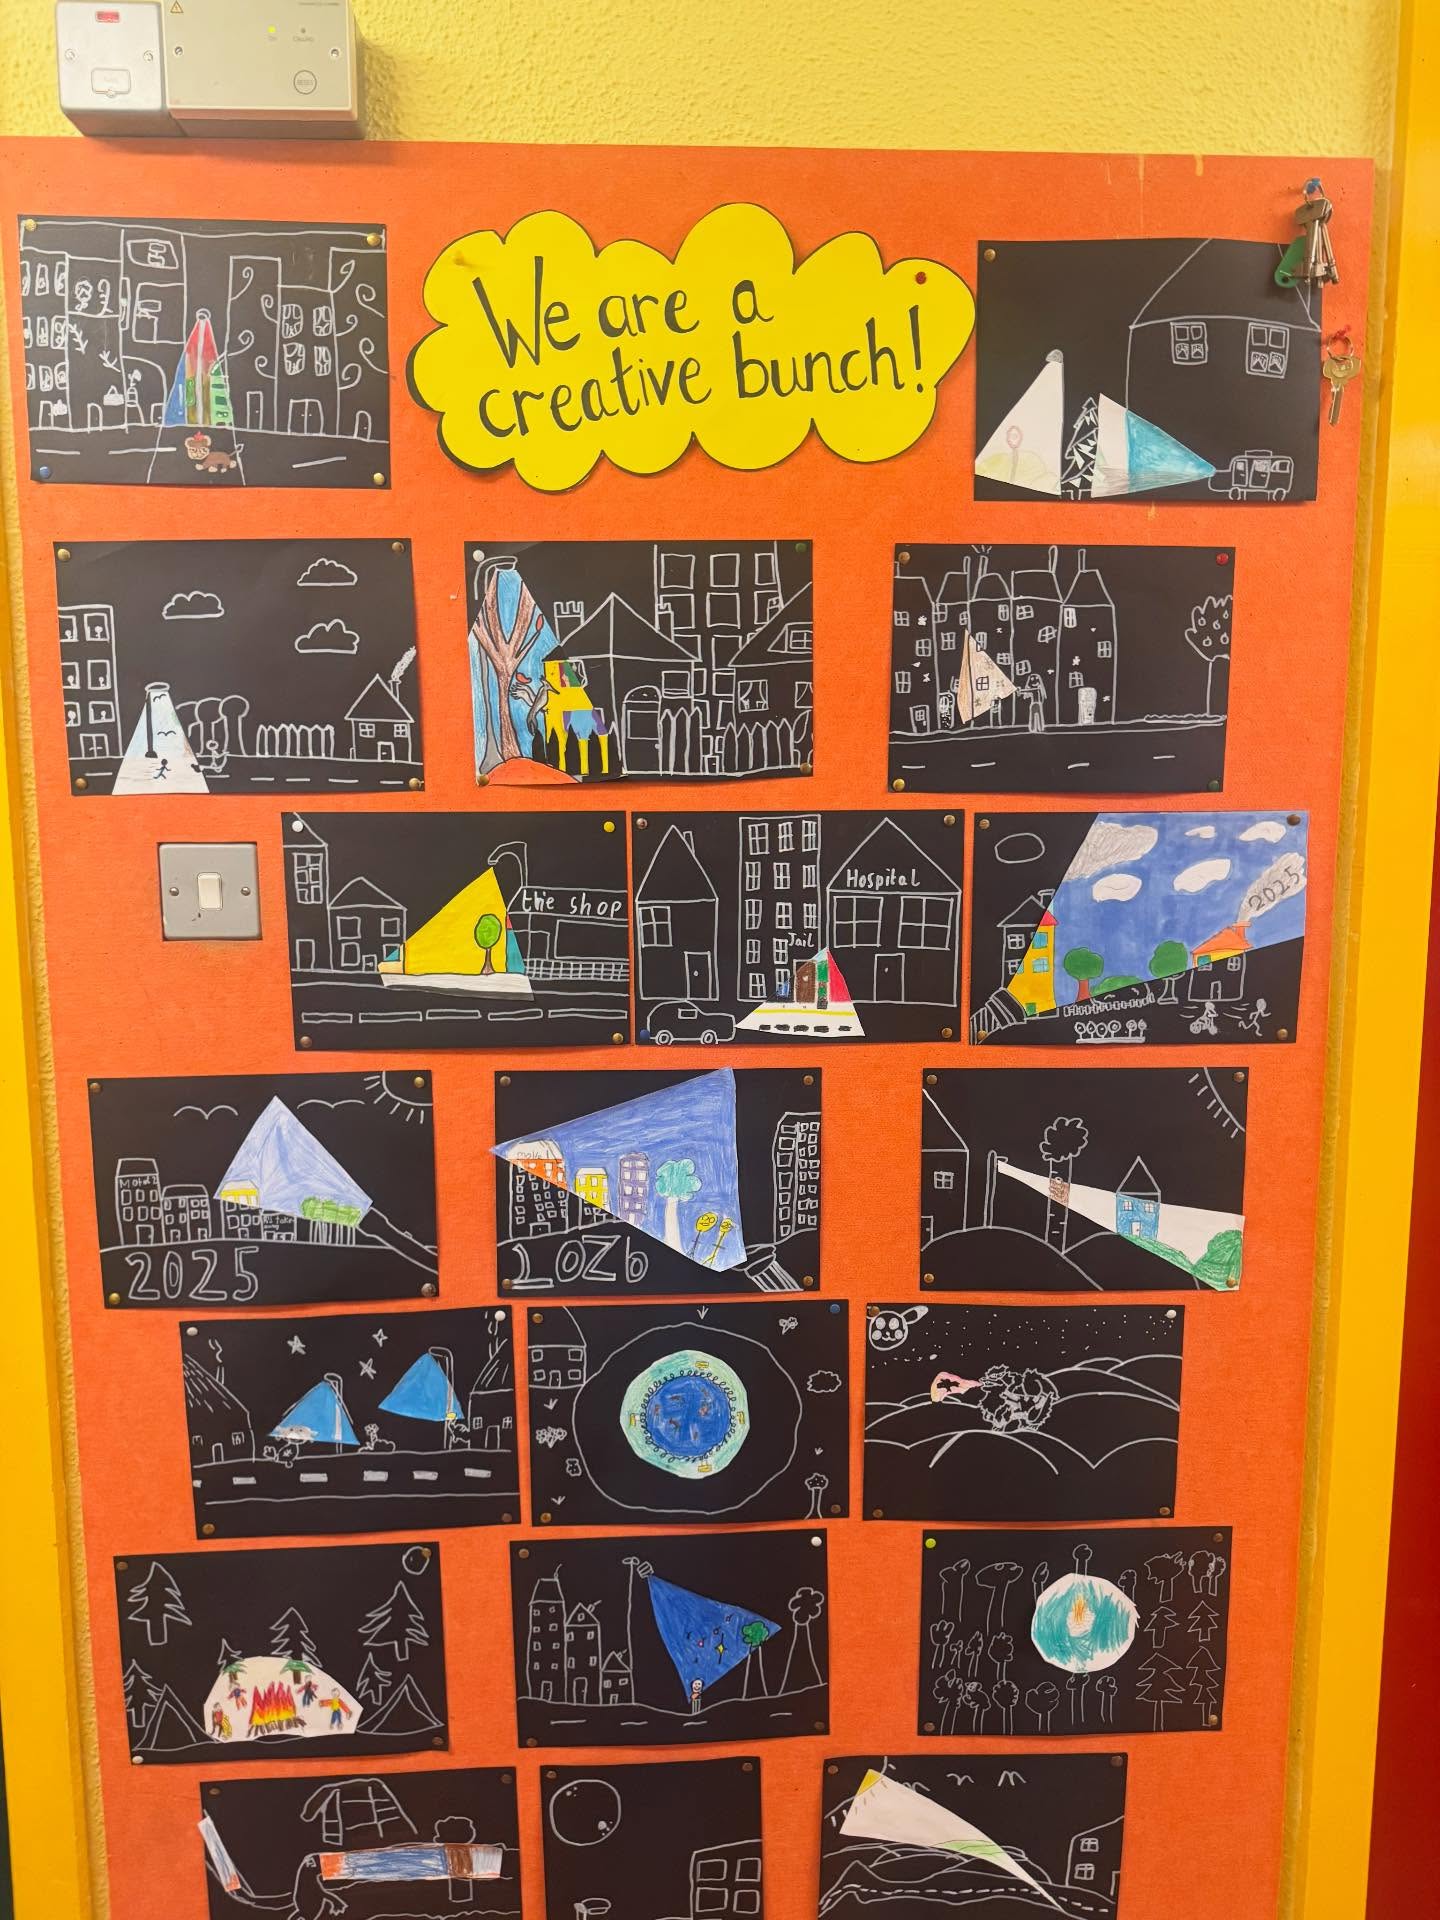 We are a
creative bunch!
the shop
Hospital
Jail
2025
Motel
2025
motel
2026